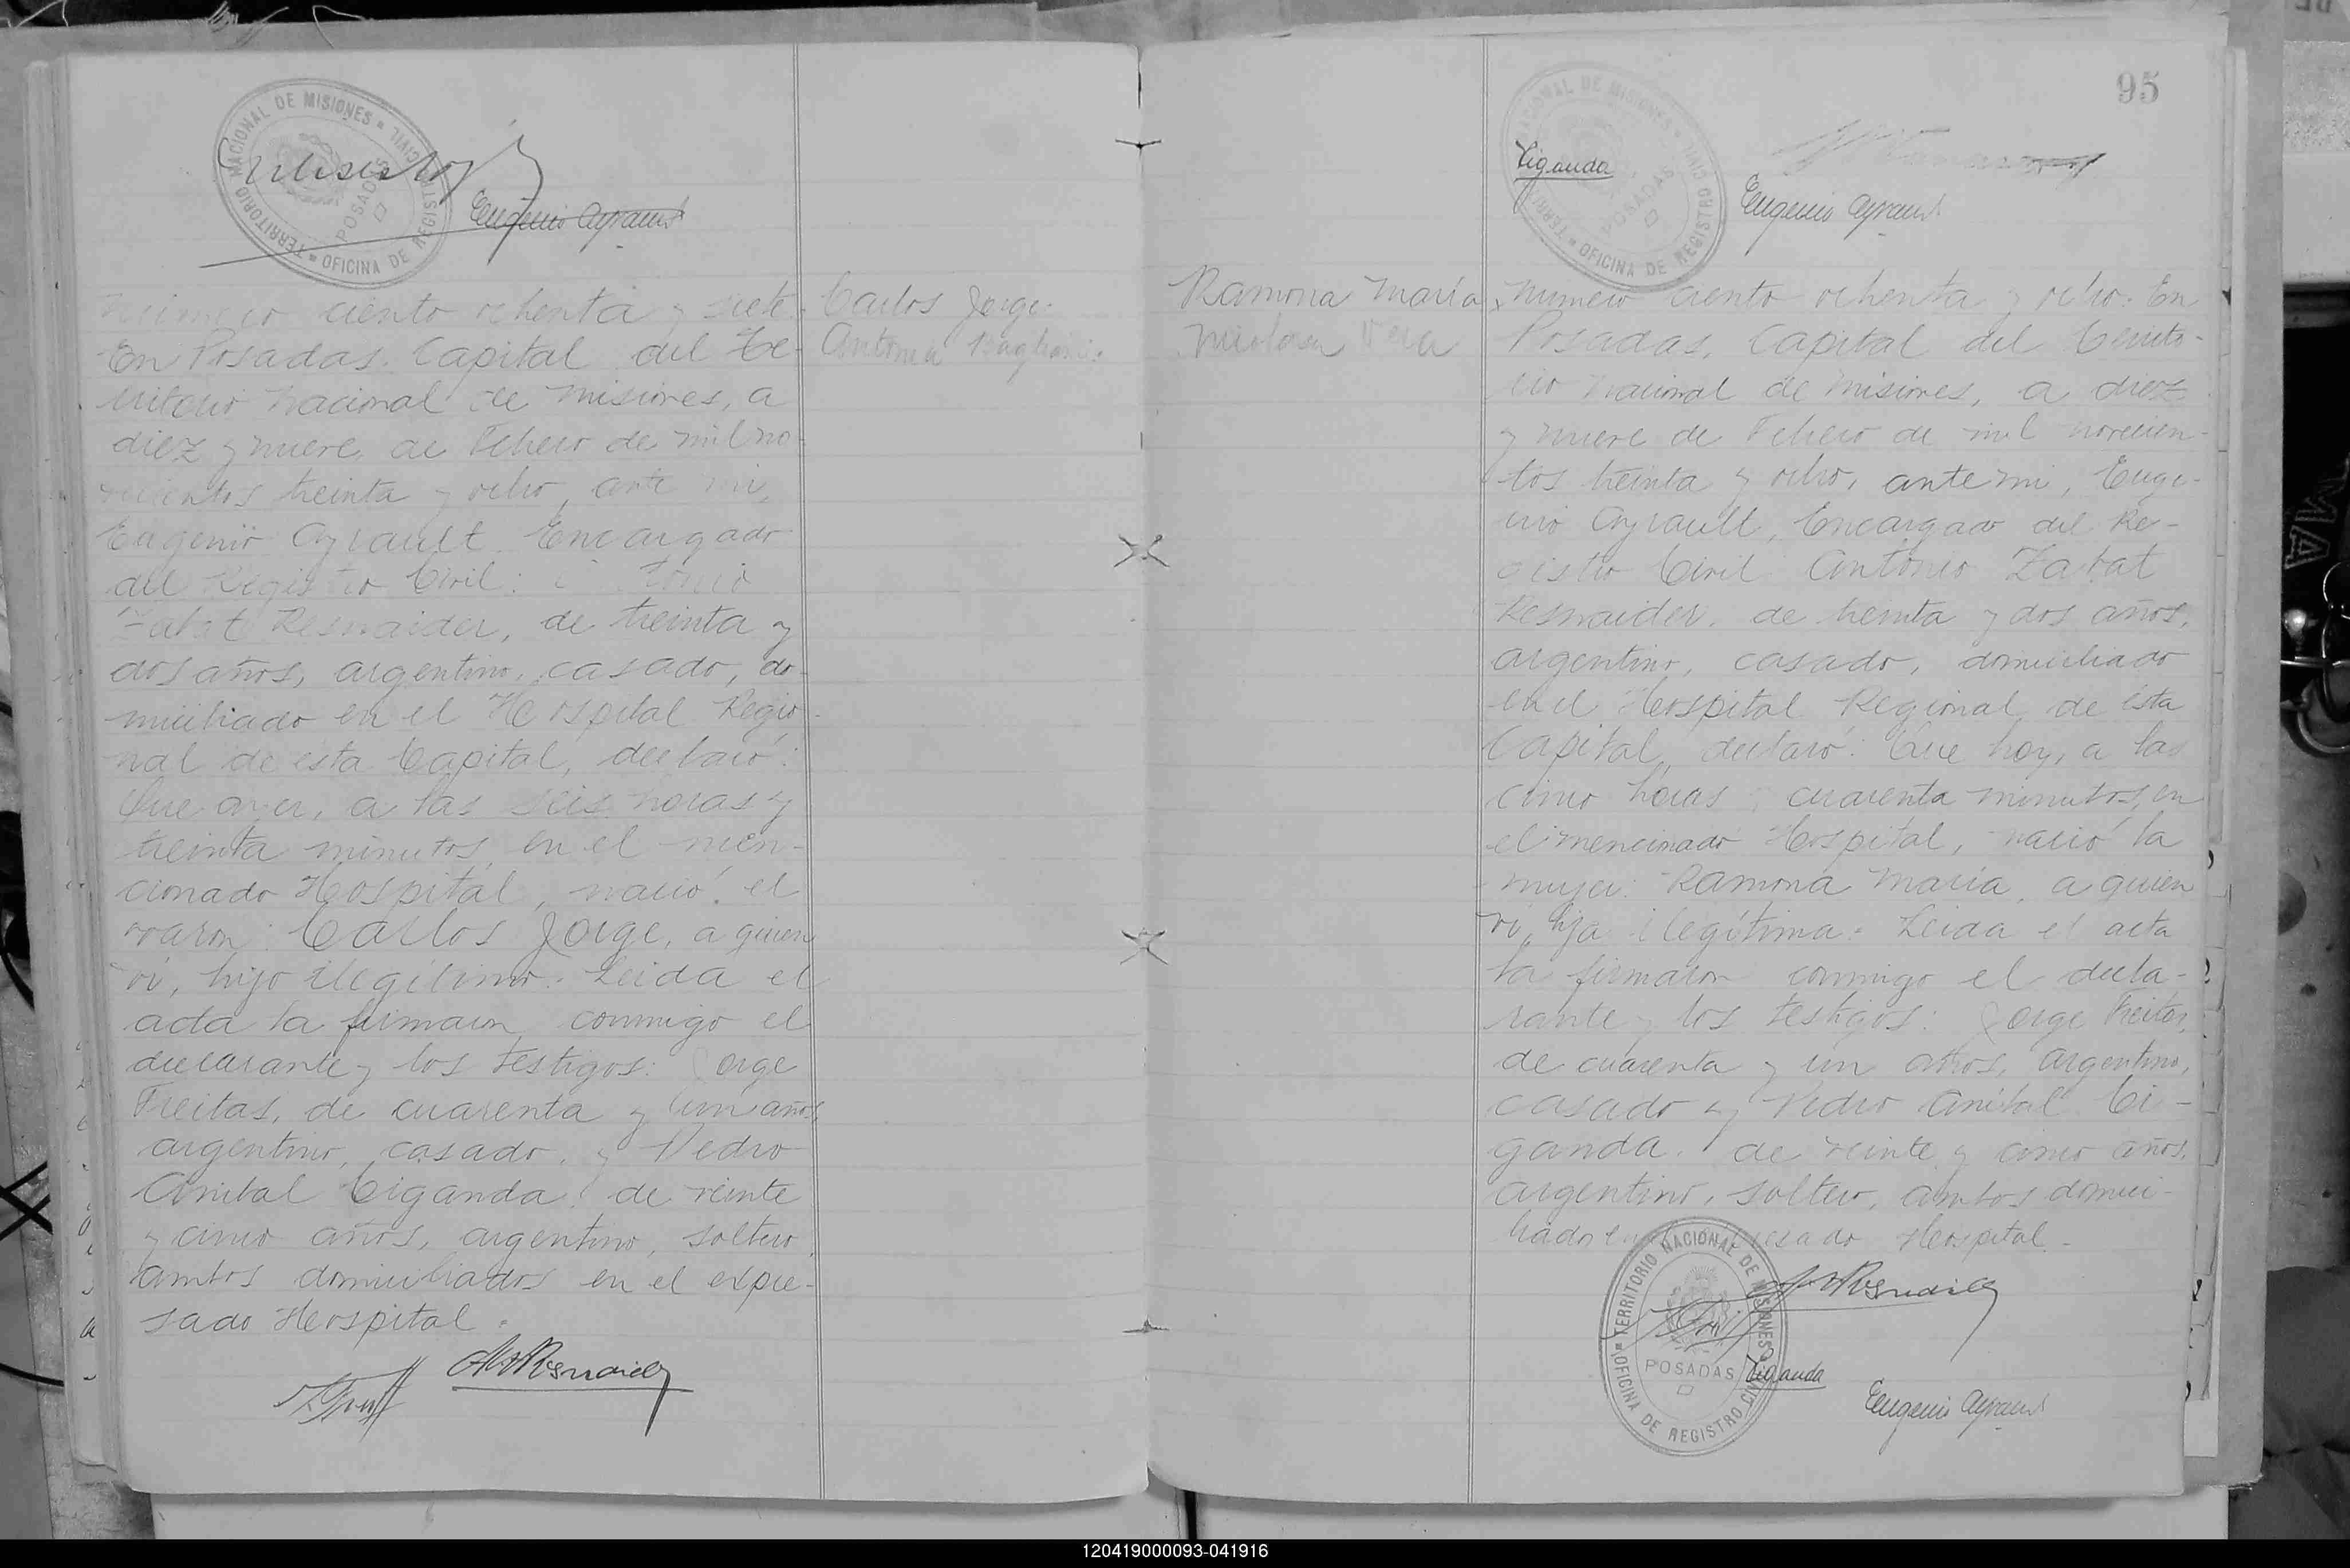 TERRITORIO NACIONAL DE MISIONES
OFICINA DE REGISTRO CIVIL
POSADAS
Eugenio Ayrault
Número ciento ochenta y siete.
En Posadas, Capital del Te-
rritorio Nacional de Misiones, a
diez y nueve de Febrero de mil no-
vecientos treinta y ocho, ante mi,
Eugenio Ayrault, Encargado
del Registro Civil: Antonio
Zabat Resnaider, de treinta y
dos años, argentino, casado, do-
miciliado en el Hospital Regio-
nal de esta Capital, declaró:
Que ayer, a las seis horas y
treinta minutos, en el men-
cionado Hospital, nació el
varon: Carlos Jorge, a quien
vi, hijo ilegítimo.- Leida el
acta la firmaron conmigo el
declarante y los testigos: Jorge
Freitas, de cuarenta y un años,
argentino, casado, y Pedro
Anibal Ciganda, de veinte
y cinco años, argentino, soltero,
ambos domiciliados en el expre-
sado Hospital.
Carlos Jorge.
Antonia
95
TERRITORIO NACIONAL DE MISIONES
OFICINA DE REGISTRO CIVIL
POSADAS
Ciganda
Eugenio Ayrault
Ramona María
Vera
Número ciento ochenta y ocho. En
Posadas, Capital del Territo-
rio Nacional de Misiones, a diez
y nueve de Febrero de mil novecien-
tos treinta y ocho, ante mi, Euge-
nio Ayrault, Encargado del Re-
gistro Civil Antonio Zabat
Resnaider, de treinta y dos años,
argentino, casado, domiciliado
en el Hospital Regional de ésta
Capital, declaró: Que hoy, a las
cinco horas y cuarenta minutos, en
el mencinado Hospital, nació la
mujer: Ramona María, a quien
vi, hija ilegítima.- Leida el acta
la firmaron conmigo el decla-
rante y los testigos: Jorge Freitas,
de cuarenta y un años, argentino,
casado y Pedro Anibal Ci-
ganda, de veinte y cinco años,
argentino, soltero, ambos domici-
liados en el expresado Hospital.-
TERRITORIO NACIONAL DE MISIONES
OFICINA DE REGISTRO CIVIL
POSADAS
Ciganda
Eugenio Ayrault
120419000093-041916